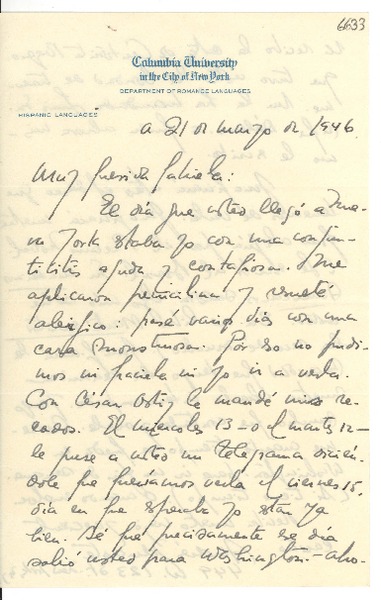 6633
Columbia University
in the City of New York
DEPARTMENT OF ROMANCE LANGUAGES
HISPANIC LANGUAGES
a 21 de marzo de 1946
Muy querida Gabriela:
El día que usted llegó a Nue-
va York estaba yo con una conjun-
tivitis aguda y contagiosa. Me
aplicaron penicilina y resulté
alérgico: pasé varios días con una
cara monstruosa. Por eso no pudi-
mos ni Graciela ni yo ir a verla.
Con César Ortiz le mandé unos re-
cados. El miércoles 13 - o el martes 12 -
le puse a usted un telegrama dicién-
dole que queríamos verla el viernes 15,
día en que esperaba yo estar ya
bien. Sé que precisamente ese día
salió usted para Washington - aho-